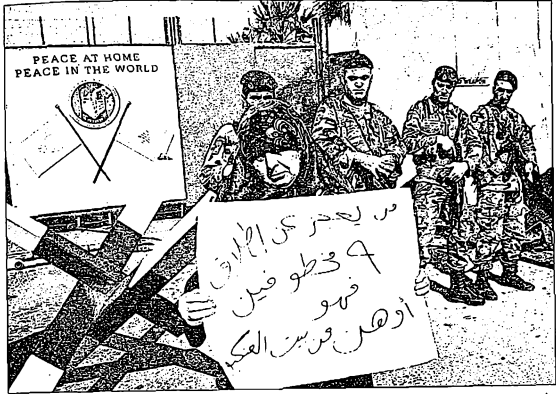 PEACE AT HOME
PEACE IN THE WORLD
من يعجز عن إطلاق
٩ مخطوفين
فهو
أوهن من بيت العنكبوت